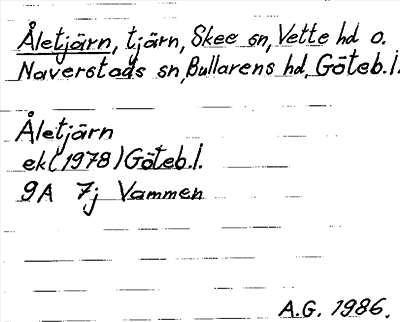 Åletjärn, tjärn, Skee sn, Vette hd o.
Naverstads sn, Bullarens hd, Göteb.l.
Åletjärn
ek (1978) Göteb.l.
9A 7j Vammen
A.G. 1986.